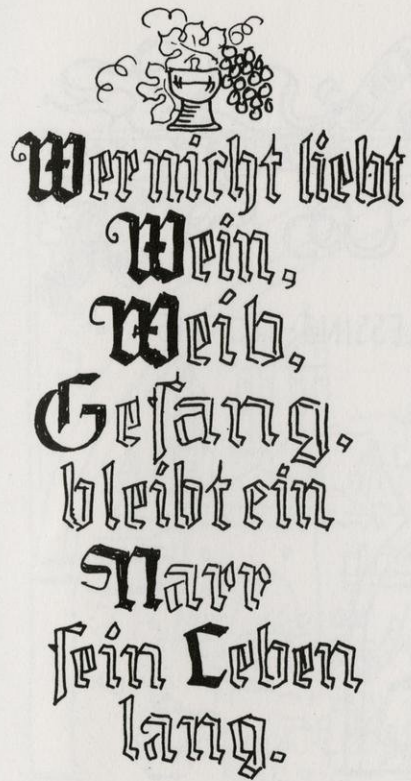 Wer nicht liebt
Wein,
Weib,
Gesang,
bleibt ein
Narr
sein Leben
lang.